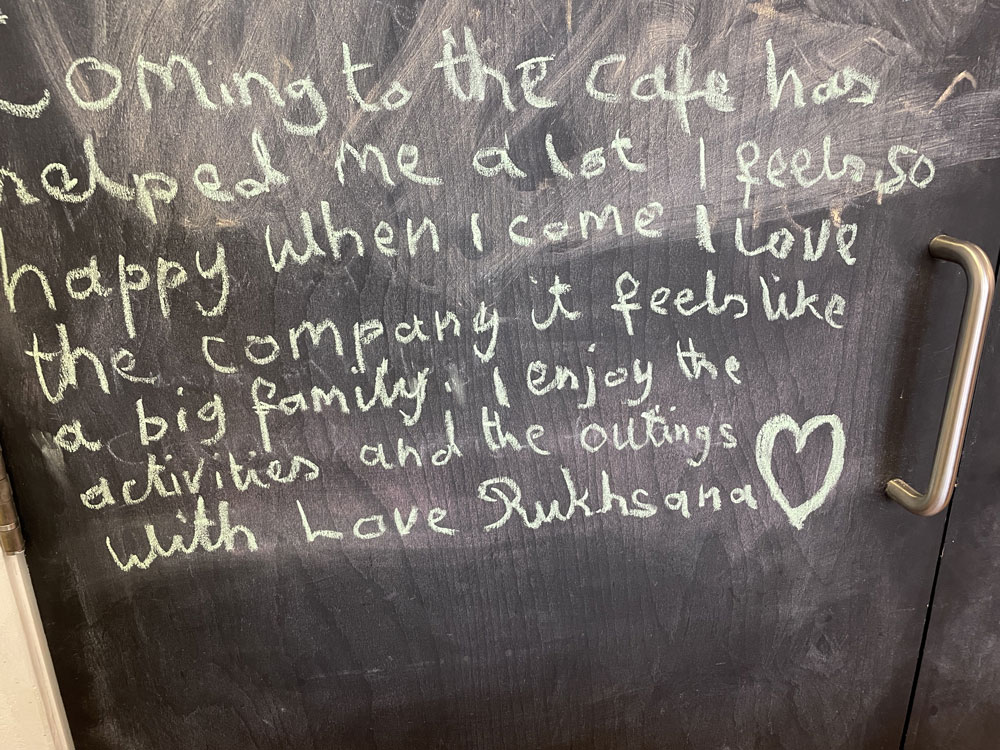 Coming to the cafe has
helped me a lot I feels so
happy when I come I Love
the company it feels like
a big family. I enjoy the
activities and the outings
with Love Rukhsana